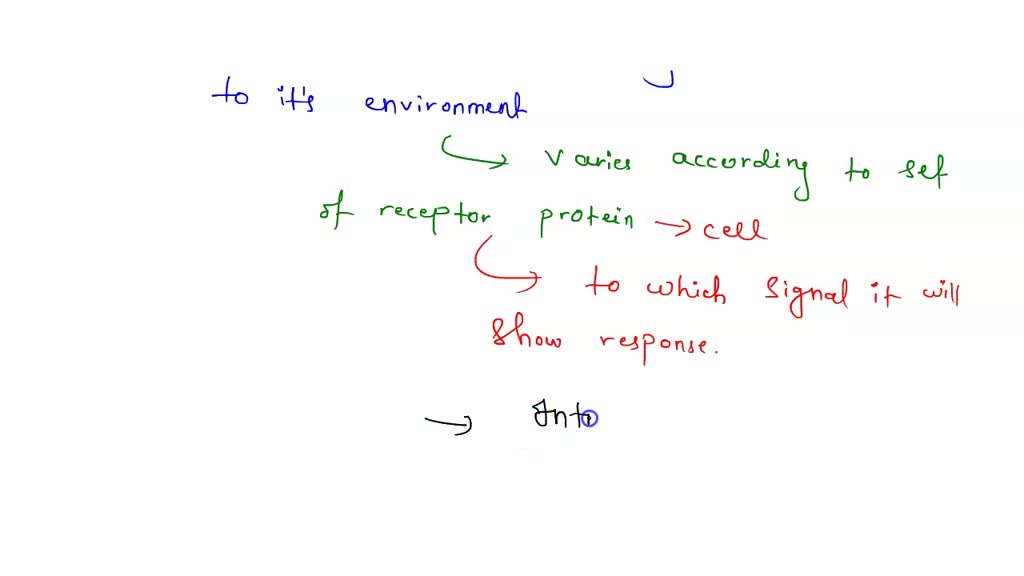 to it's environment
varies according to set
of receptor protein → cell
to which signal it will
show response.
→ Int